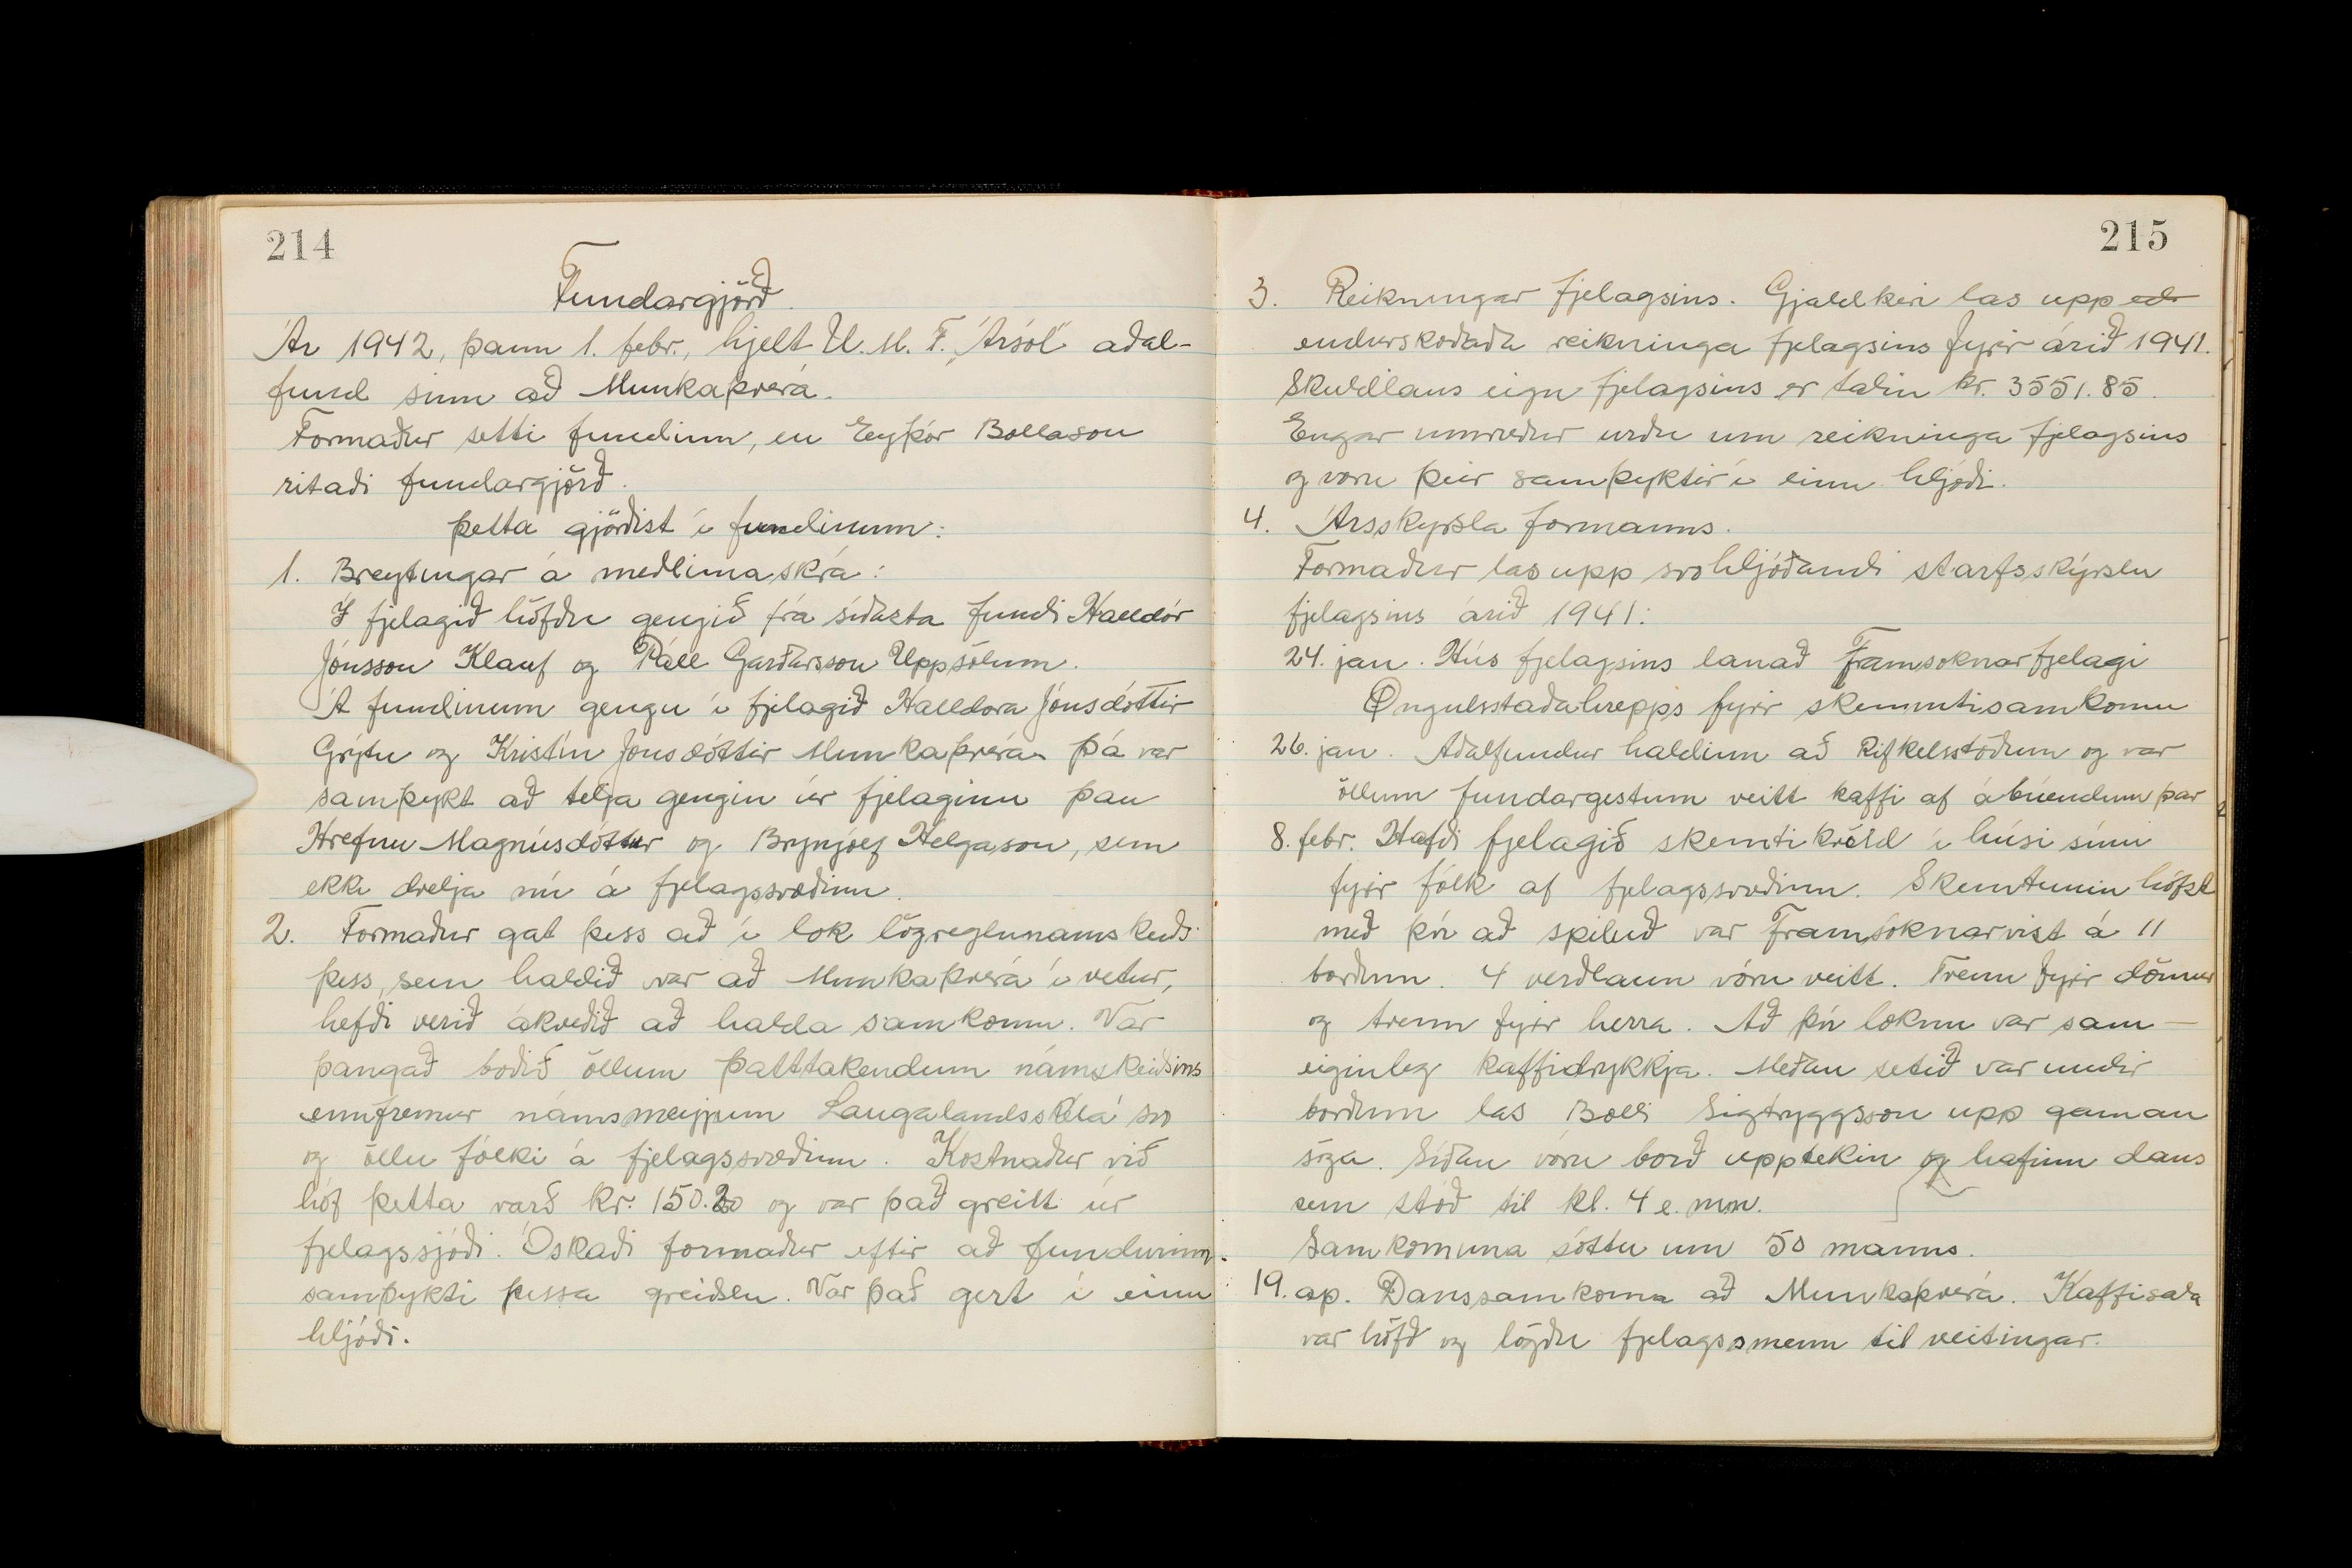 214
Fundargjörð.
Ár 1942, þann 1. febr., hjelt U.M.F. "Ársól" aðal-
fund sinn að Munkaþverá.
Formaður setti fundinn, en Eyþór Bollason
ritaði fundargjörð.
Þetta gjörðist í fundinum:
1. Breytingar á meðlimaskrá:
Í fjelagið höfðu gengið frá síðasta fundi Halldór
Jónsson Klauf og Páll Garðarsson Uppsölum.
Á fundinum gengu í fjelagið Halldora Jónsdóttir
Grýtu og Kristín Jónsdóttir Munkaþverá. Þá var
samþykt að telja gengin úr fjelaginu þau
Hrefnu Magnúsdóttur og Brynjólf Helgason, sem
ekki dvelja nú á fjelagssvæðinu.
2. Formaður gat þess að í lok lögreglunamskeiðs
þess, sem haldið var að Munkaþverá í vetur,
hefði verið ákveðið að halda samkomu. Var
þangað boðið öllum þatttakendum námskeiðsins
ennfremur námsmeyjum Laugalandsskóla svo
og öllu fólki á fjelagssvæðinu. Kostnaður við
hóf þetta varð kr. 150.20 og var það greitt úr
fjelagssjóði. Óskaði formaður eftir að fundurinn
samþykti þessa greiðslu. Var það gert í einu
hljóði.
215
3. Reikningar fjelagsins. Gjaldkeri las upp edr
endurskoðaða reikninga fjelagsins fyrir árið 1941.
Skuldlaus eign fjelagsins er talin kr. 3551.85.
Engar umræður urðu um reikninga fjelagsins
og voru þeir samþyktir í einu hljóði.
4. Ársskyrsla formanns.
Formaður las upp svohljóðandi starfsskýrslu
fjelagsins árið 1941:
24. jan. Hús fjelagsins lanað Framsoknarfjelagi
Öngulsstaðahrepps fyrir skemmtisamkomu
26. jan. Aðalfundur haldinn að Rifkelsstöðum og var
öllum fundargestum veitt kaffi af ábúendum þar
8. febr. Hafði fjelagið skemtikvöld í húsi sínu
fyrir fólk af fjelagssvæðinu. Skemtunin hófst
með því að spiluð var Framsóknarvist á 11
borðum. 4 verðlaun vóru veitt. Tvenn fyrir dömur
og tvenn fyrir herra. Að því loknu var sam-
eiginleg kaffidrykkja. Meðan setið var undir
borðum las Bolli Sigtryggsson upp gaman
söga. Síðan vóru borð upptekin og hafinn dans
sem stóð til kl. 4 e. mn.
Samkomuna sóttu um 50 manns.
19. ap. Danssamkoma að Munkaþverá. Kaffisala
var höfð og lögðu fjelagssmenn til veitingar.